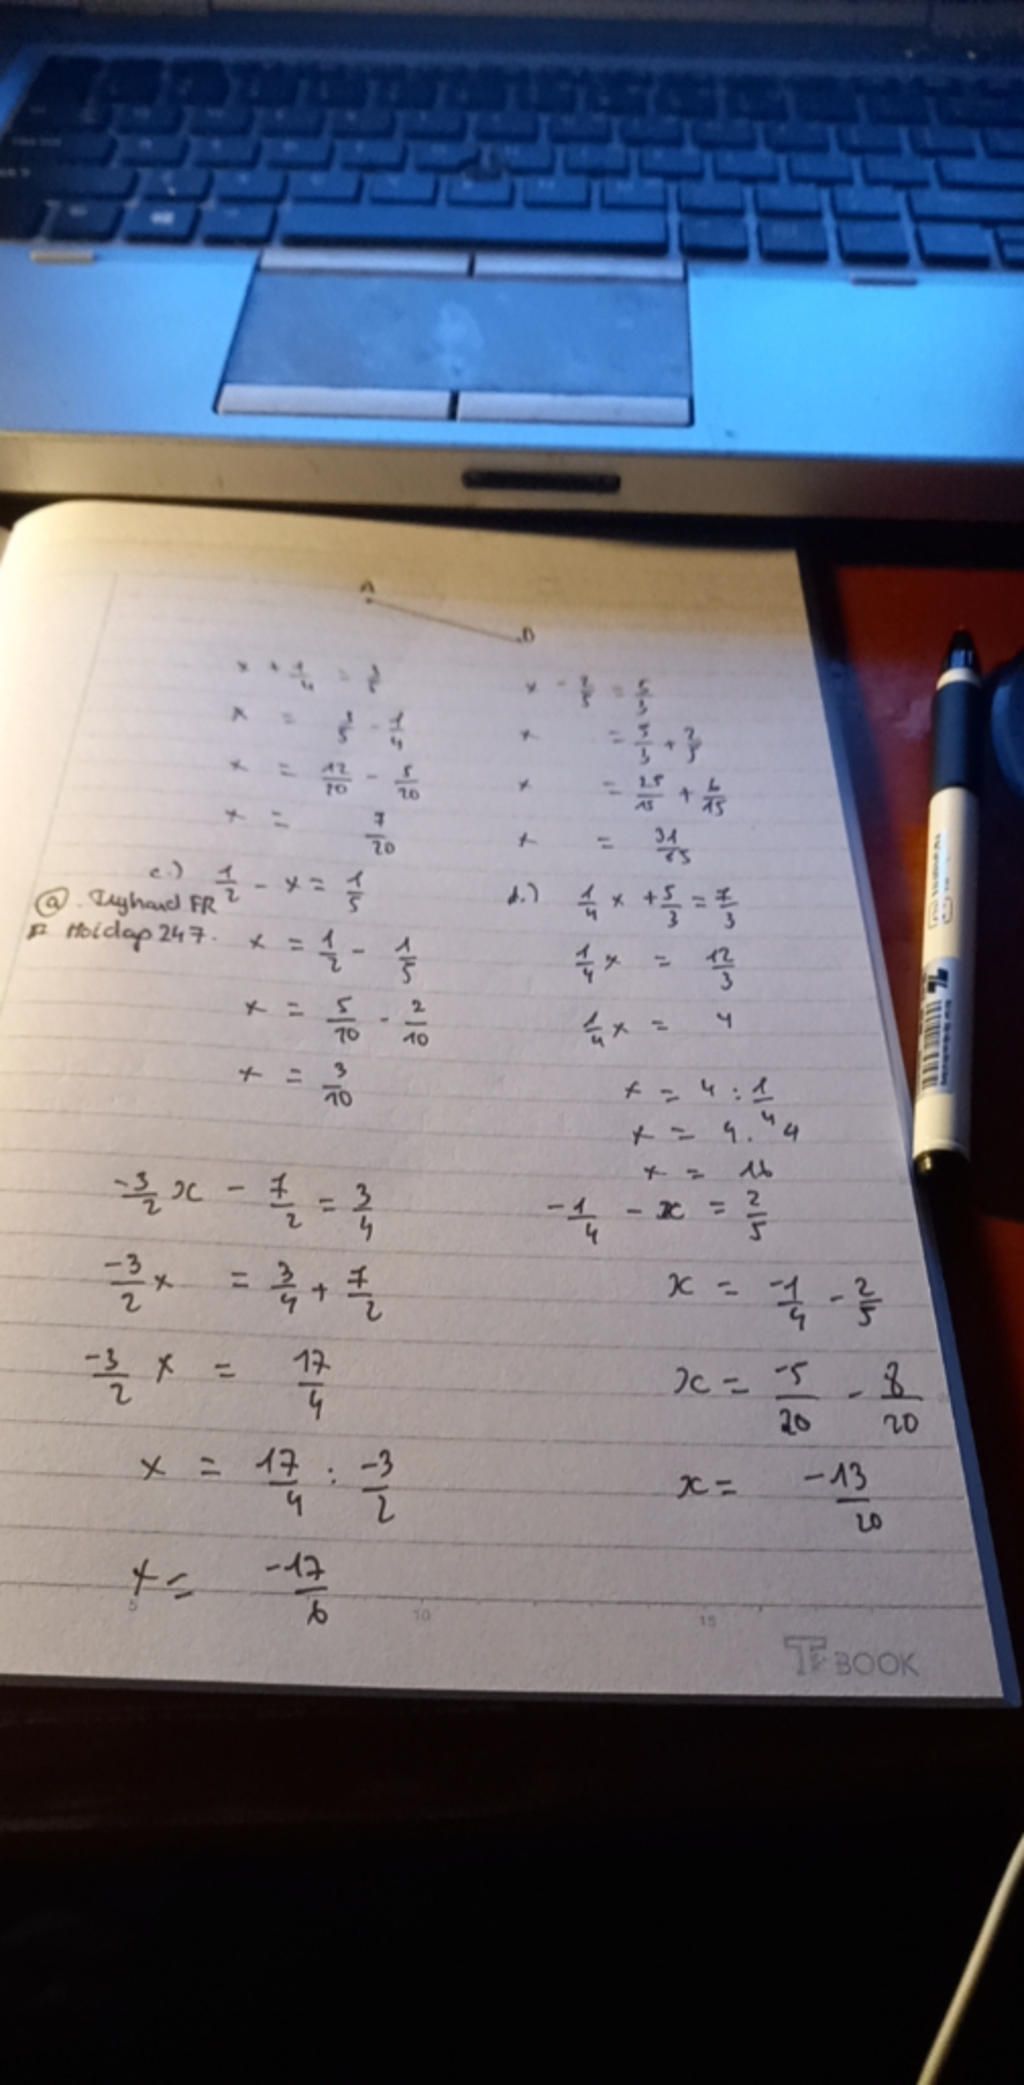 A
B
x + 1/4 = 3/5
x = 3/5 - 1/4
x = 12/20 - 5/20
x = 7/20
x - 2/5 = 5/3
x = 5/3 + 2/5
x = 25/15 + 6/15
x = 31/15
c.) 1/2 - x = 1/5
x = 1/2 - 1/5
x = 5/10 - 2/10
x = 3/10
@
FR
Hoidap 247.
d.) 1/4 x + 5/3 = 7/3
1/4 x = 12/3
1/4 x = 4
x = 4 : 1/4
x = 4 . 4
x = 16
-3/2 x - 7/2 = 3/4
-3/2 x = 3/4 + 7/2
-3/2 x = 17/4
x = 17/4 : -3/2
x = -17/6
-1/4 - x = 2/5
x = -1/4 - 2/5
x = -5/20 - 8/20
x = -13/20
5 10 15
BOOK